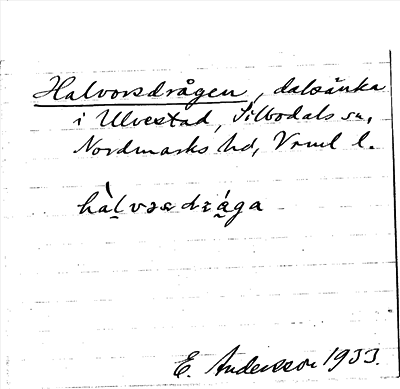 Halvorsdrågen, dalsänka
i Ulvestad, Silbodals sn,
Nordmarks hd, Vrml l.
hàl̠vɔsdrá̠ga
E. Andersson 1933.